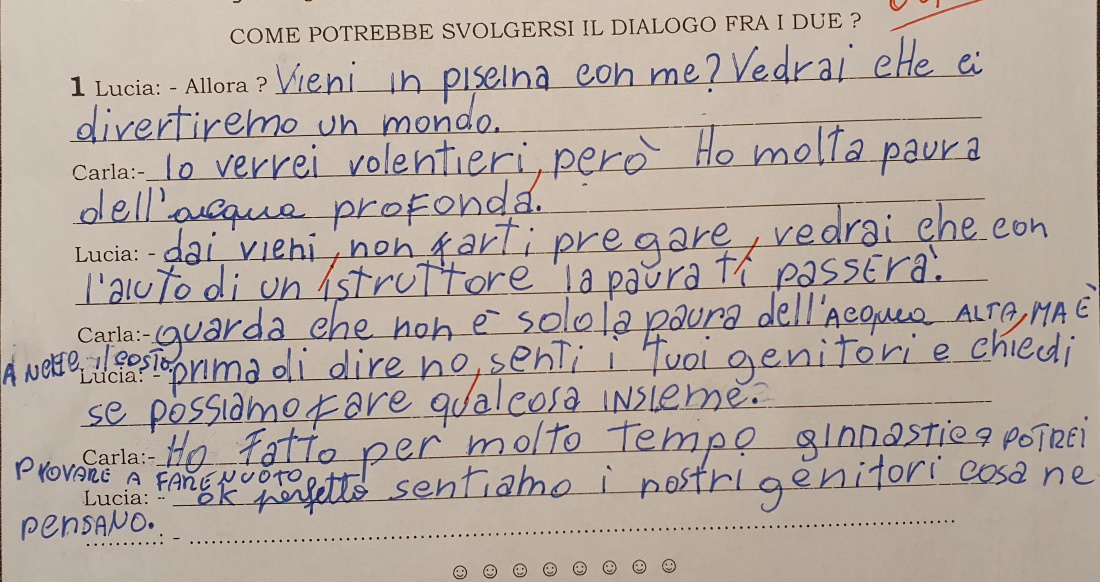 COME POTREBBE SVOLGERSI IL DIALOGO FRA I DUE ?
1 Lucia: - Allora ? Vieni in piscina con me? Vedrai cHe ci
divertiremo un mondo.
Carla:- Io verrei volentieri, però Ho molta paura
dell'acqua profonda.
Lucia: - dai vieni, non farti pregare, vedrai che con
l'aiuto di un istruttore la paura ti passerà.
Carla:- guarda che non è solo la paura dell'Acqua ALTA, MA È
ANCHE il costo.
Lucia: - prima di dire no, senti i tuoi genitori e chiedi
se possiamo fare qualcosa insieme.
Carla:- Ho Fatto per molto tempo ginnastica POTREI
PROVARE A FARE NUOTO
Lucia: - ok perfetto sentiamo i nostri genitori cosa ne
pensANO.
..........: - ..........................................................................................
☺ ☺ ☺ ☺ ☺ ☺ ☺ ☺